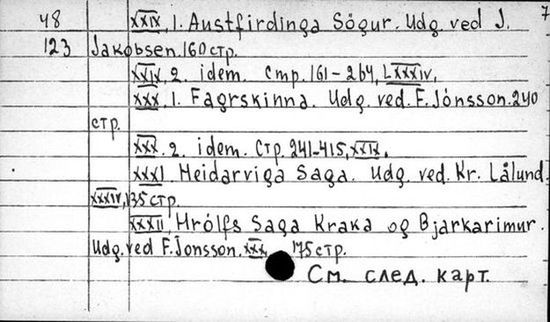 48 XXIX, 1. Austfirdinga Sögur. Udg ved J. 7
123 Jakobsen. 160 стр.
XXIX, 2. idem. Стр. 161-264, LXXXIV.
XXX, 1. Fagrskinna. Udg ved. F. Jónsson. 240
стр.
XXX. 2. idem. Стр. 241-415, XXIX.
XXXI, Heidarviga Saga. Udg. ved. Kr. Lålund.
XXXIV, 135 стр.
XXXII, Hrólfs Saga Kraka og Bjarkarimur.
Udg. ved F. Jonsson. XXX 175 стр.
См. след. карт.